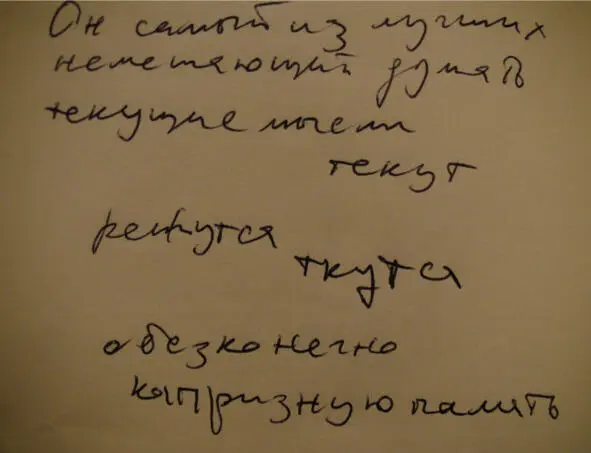 Он самый из лучших
немешающий думать
текущие мысли
текут
рвутся
ткутся
обезконечно
капризную память